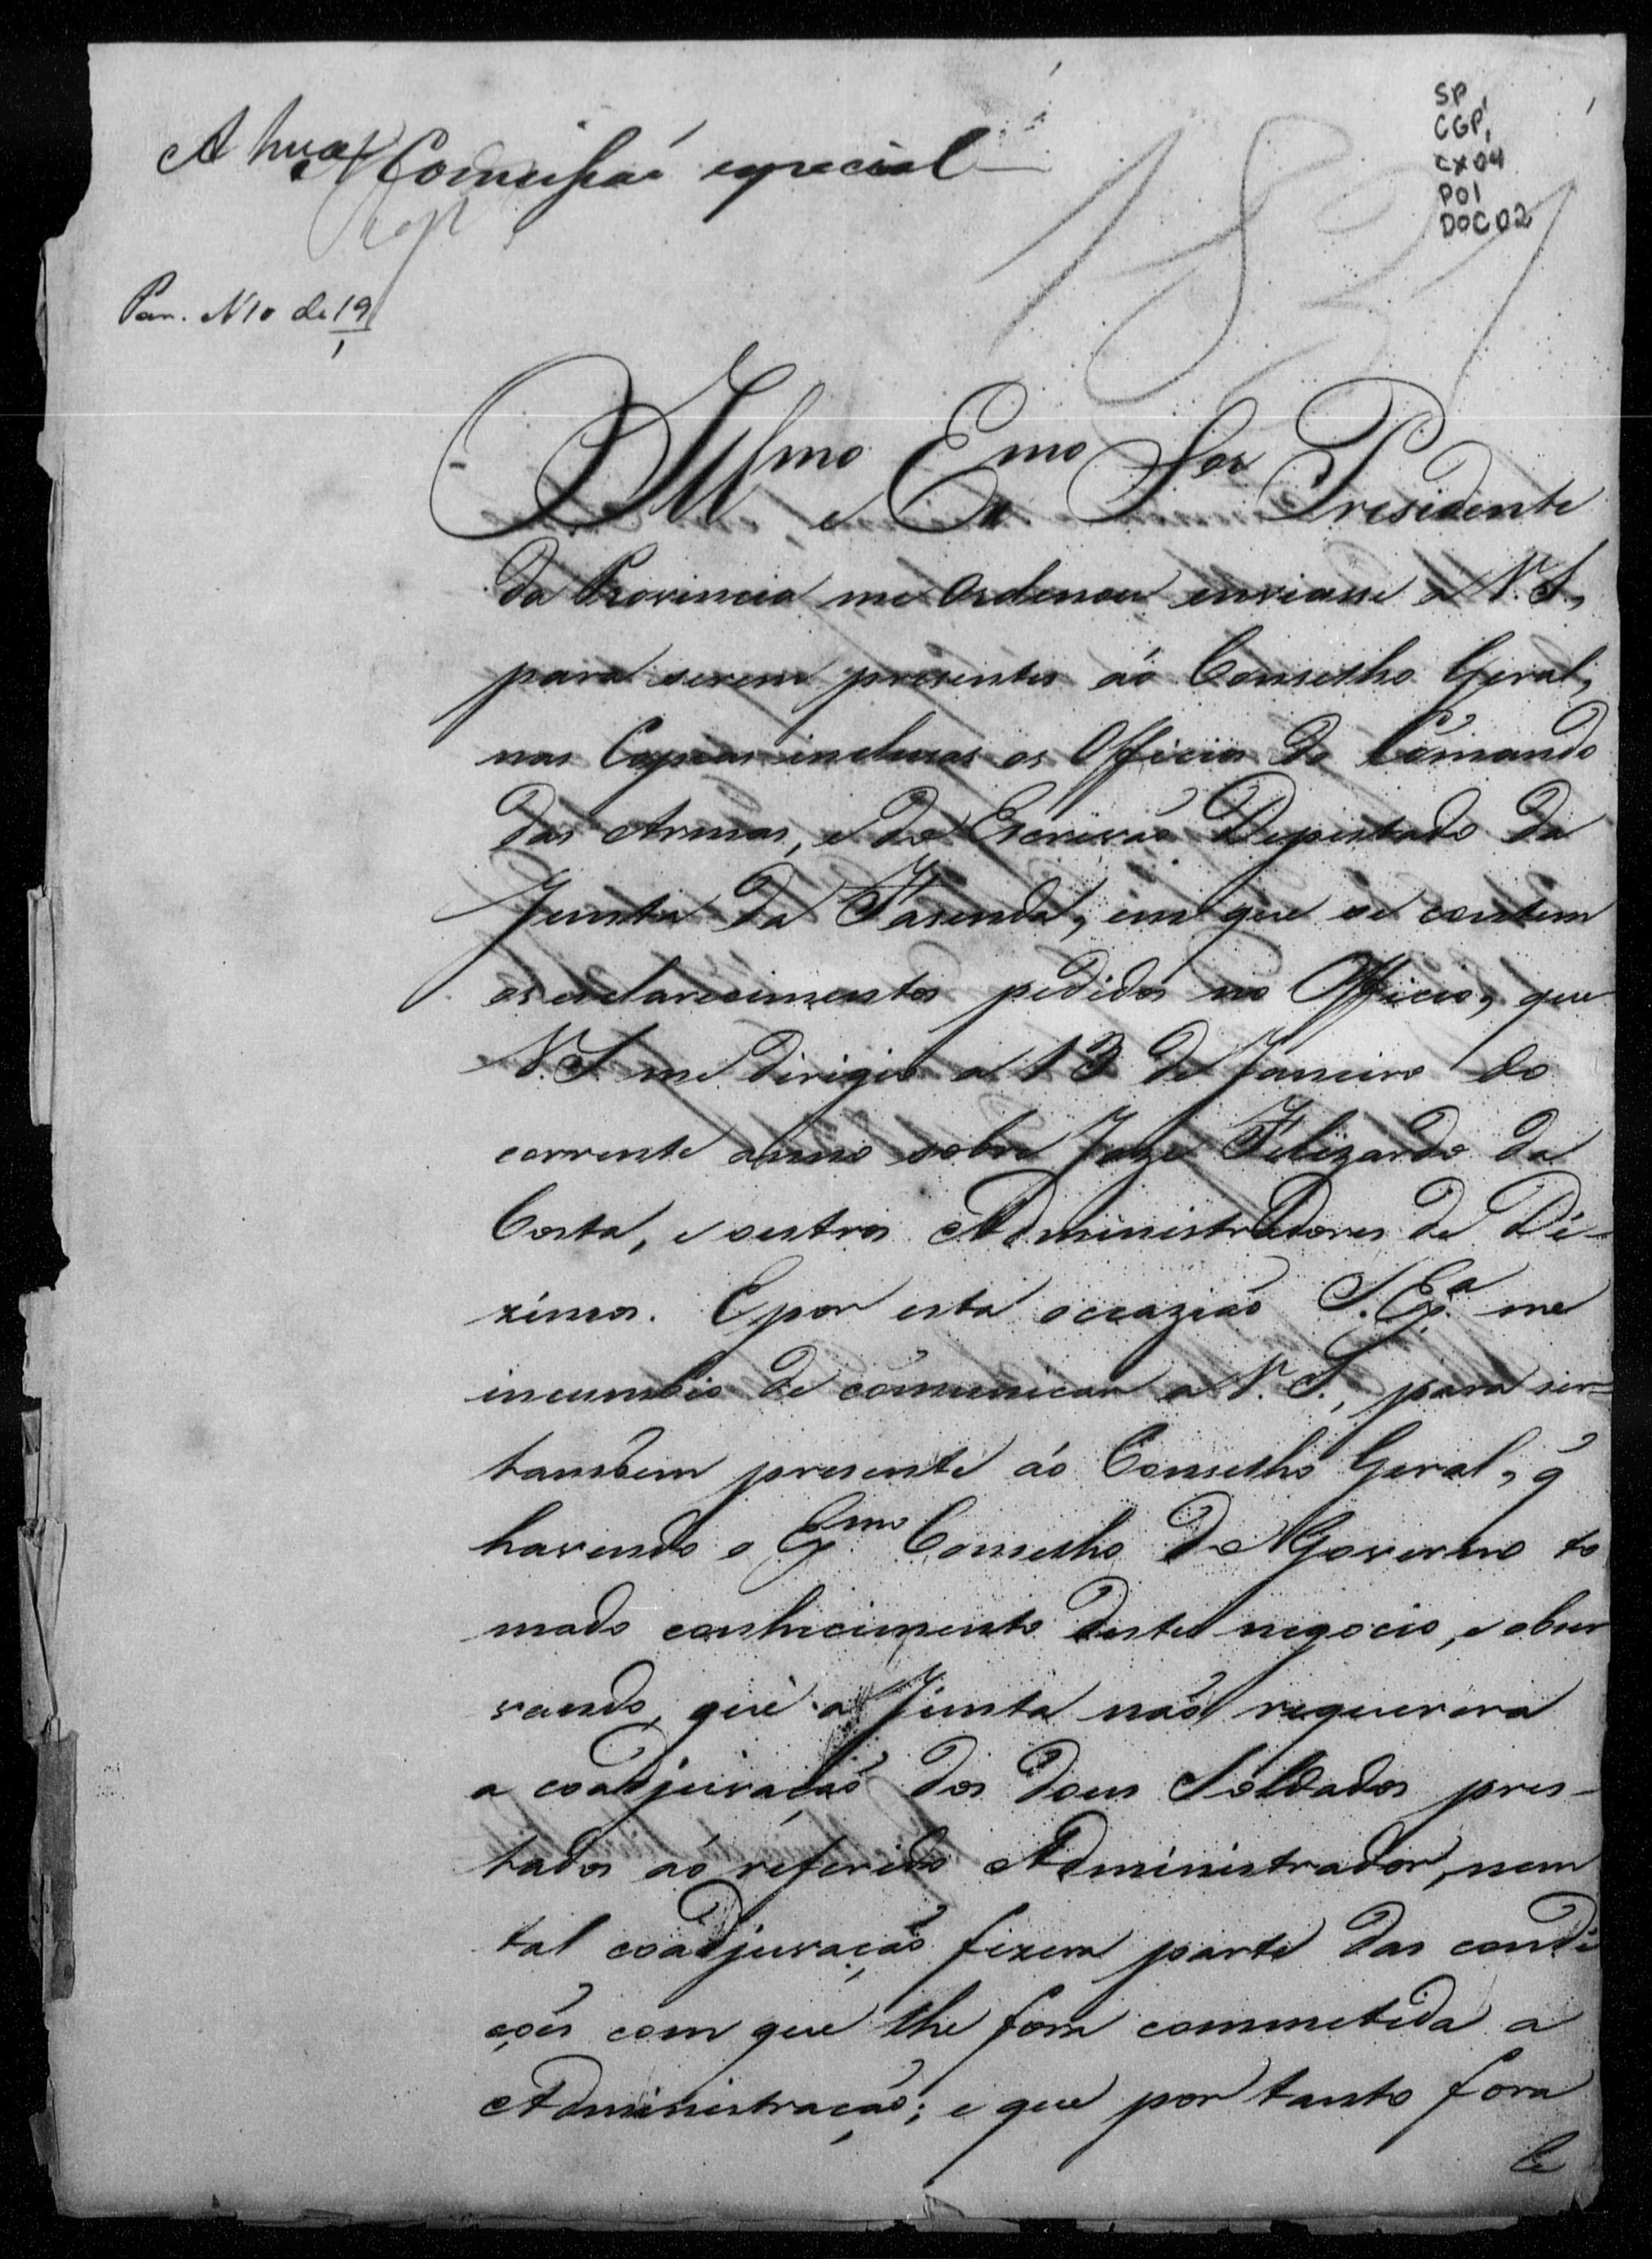 SP
CGP,
CX04
P01
DOC02
A huã Comissaõ especial
1831
Par. N10 de 19
1
O Illmo e Exmo Snr Presidente
da Provincia me Ordenou enviasse a V. S.,
para serem presentes aó Conselho Geral,
nas Copias inclusas os Officios do Cõmando
das Armas, e do Escrivaõ Deputado da
Junta da Fasenda, em que se contem
os esclarecimentos pedidos no Officio, que
V. S. me dirigio a 13 de Janeiro do
corrente anno sobre Joze Felizardo da
Costa, e outros Administradores de Di-
zimos. E por esta occaziaõ S. Exa. me
incumbio de cõmunicar a V. S., para ser
tambem presente aó Conselho Geral, q̃
havendo o Exmo Conselho do Governo to
mado conhecimento deste negocio, e obser
vando, que a Junta naõ requerera
a coadjuvaçaõ dos dous Soldados pres-
tados aó referido Administrador, nem
tal coadjuvaçaõ fizera parte das condi
çoẽs com que lhe fora commetida a
Administraçaõ; e que por tanto fora